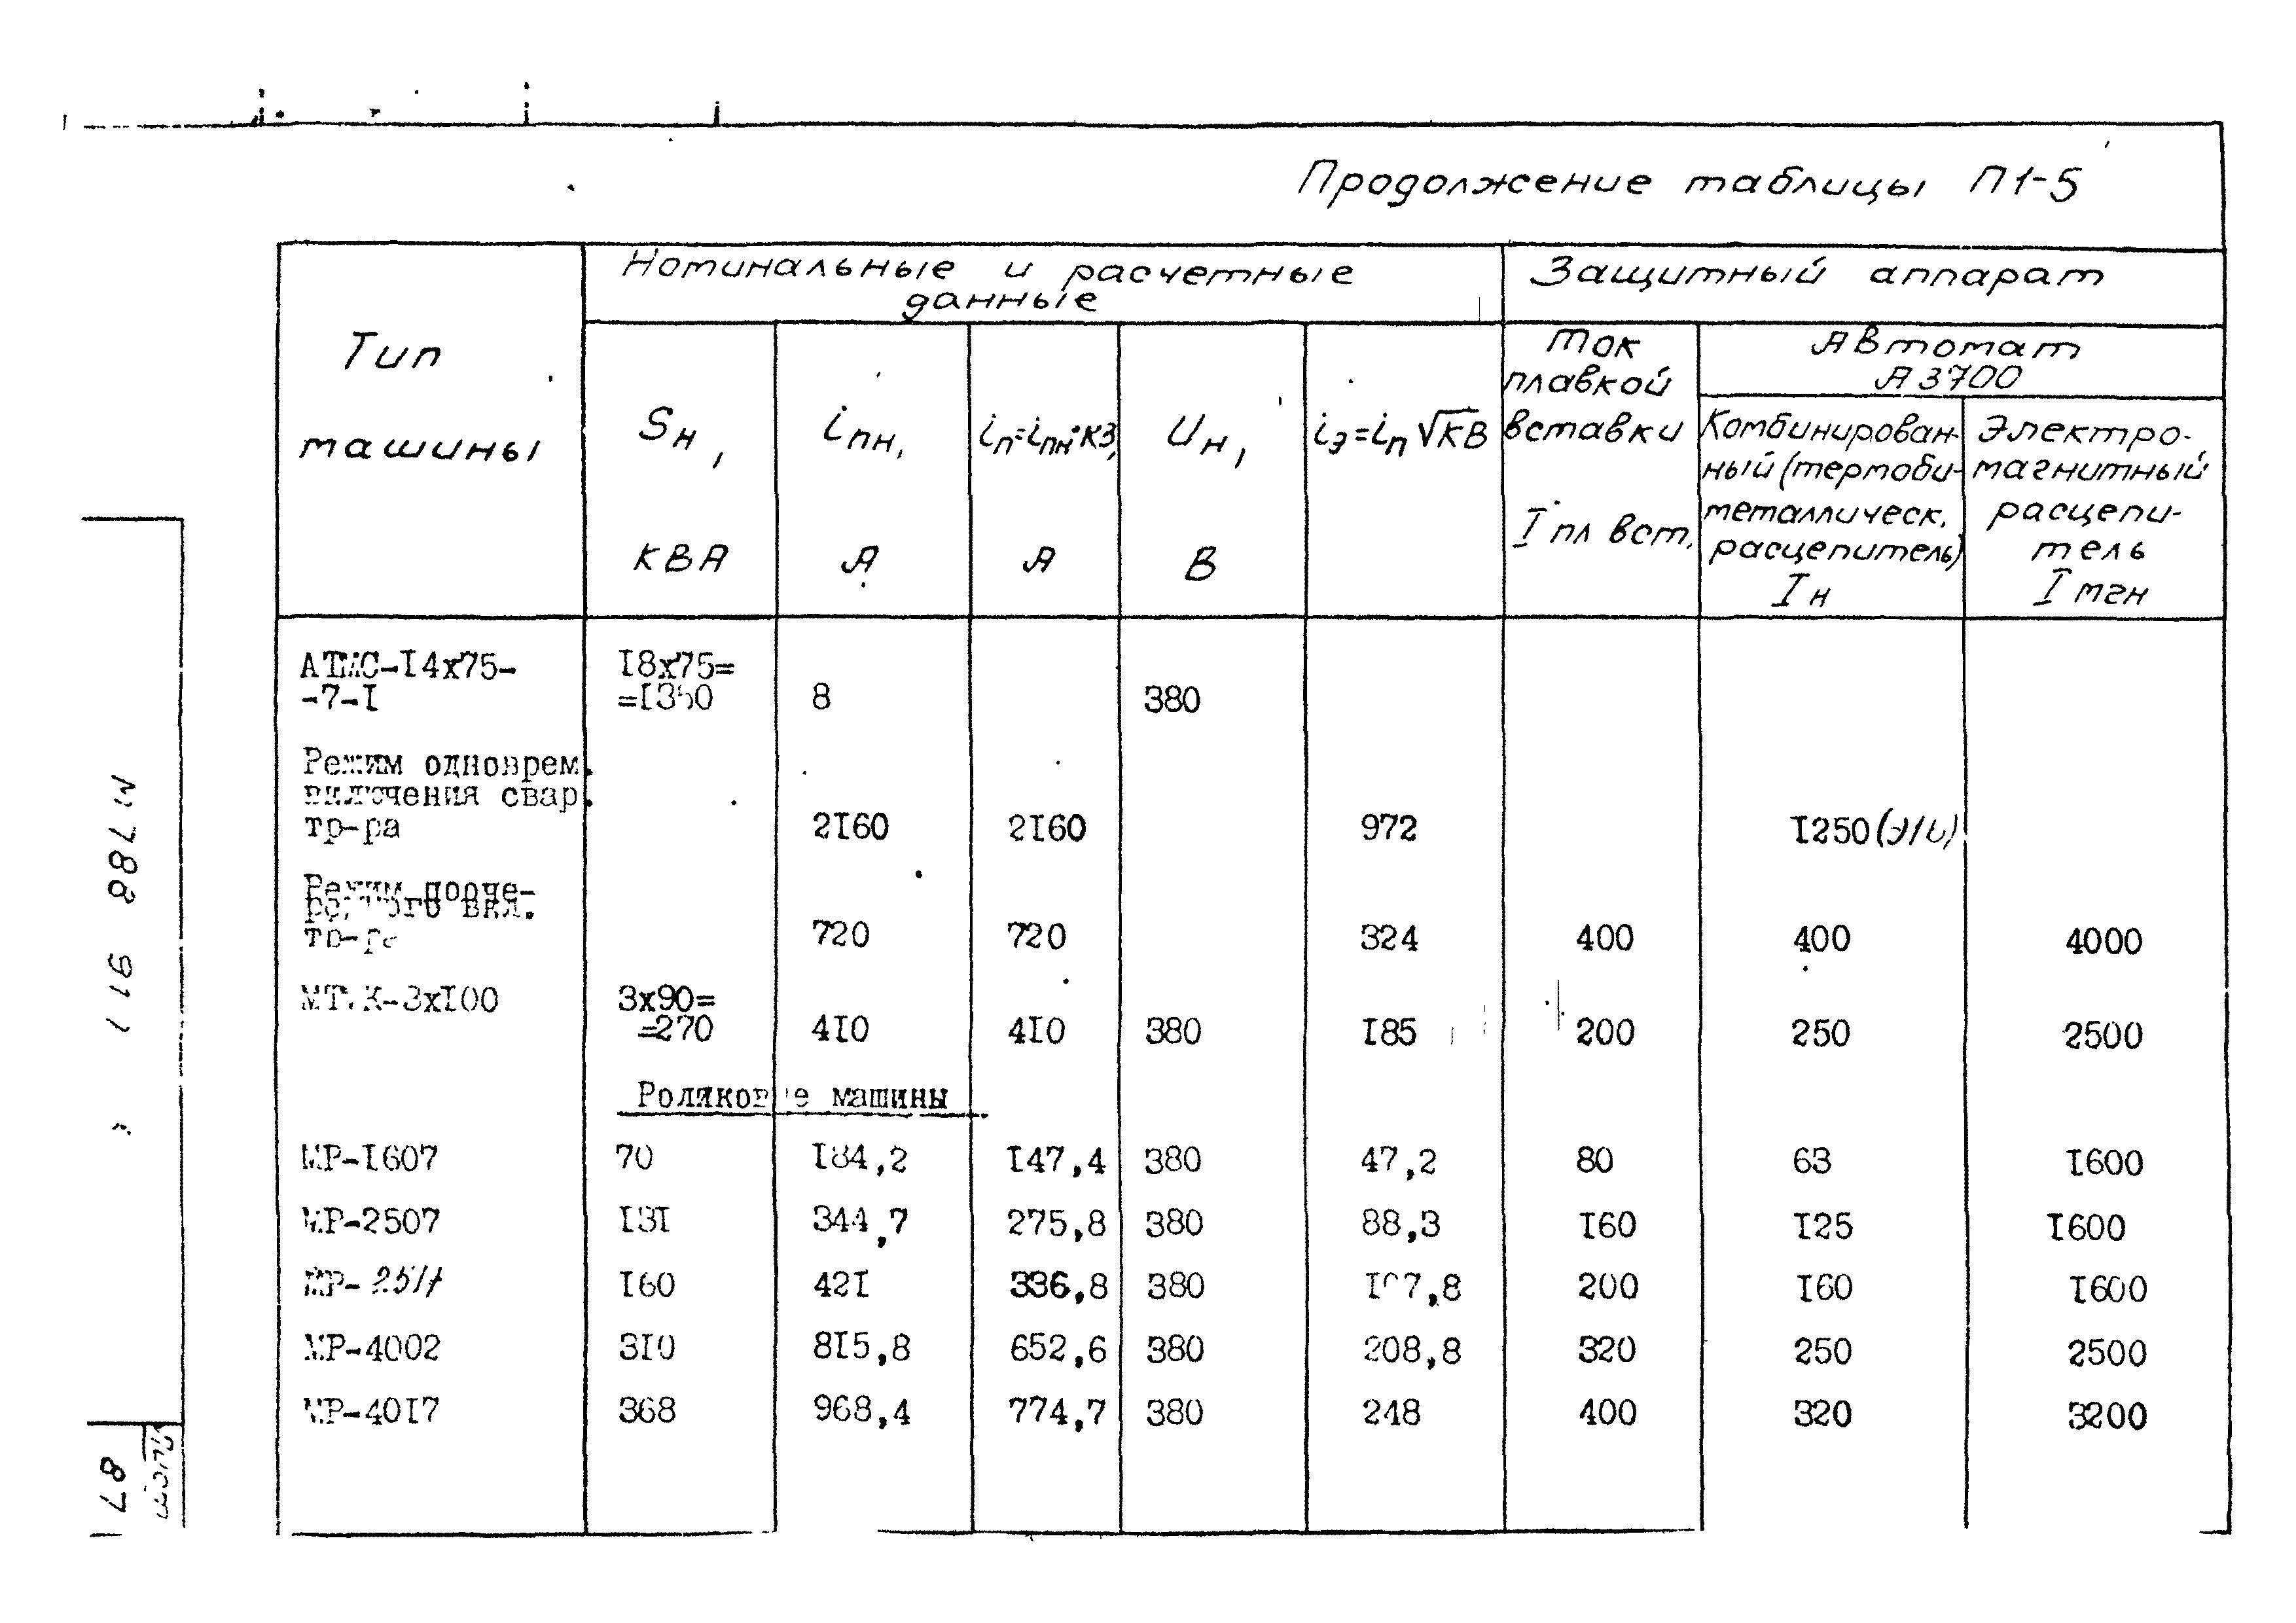 Продолжение таблицы П1-5
Тип машины
Номинальные и расчетные
данные
Защитный аппарат
Sн, КВА
iпн, А
iп=iпн·КЗ, А
Uн, В
iэ=iп √КВ
Ток
плавкой
вставки
I пл вст.
Автомат
А3700
Комбинирован-
ный (термоби-
металлическ.
расцепитель)
Iн
Электро-
магнитный
расцепи-
тель
I мгн
АТМС-I4х75- I8х75=
-7-I =I350 8 380
Режим одноврем.
включения свар.
тр-ра 2I60 2I60 972 I250 (э/
Режим пооче-
редного вкл.
тр-ра 720 720 324 400 400 4000
К-3хI00 3х90=
=270 4I0 4I0 380 I85 200 250 2500
Роликовые машины
МР-I607 70 I84,2 I47,4 380 47,2 80 63 I600
МР-2507 I3I 344,7 275,8 380 88,3 I60 I25 I600
МР- I60 42I 336,8 380 I07,8 200 I60 I600
МР-4002 3I0 8I5,8 652,6 380 208,8 320 250 2500
МР-40I7 368 968,4 774,7 380 248 400 320 3200
М788 917
87
Лист